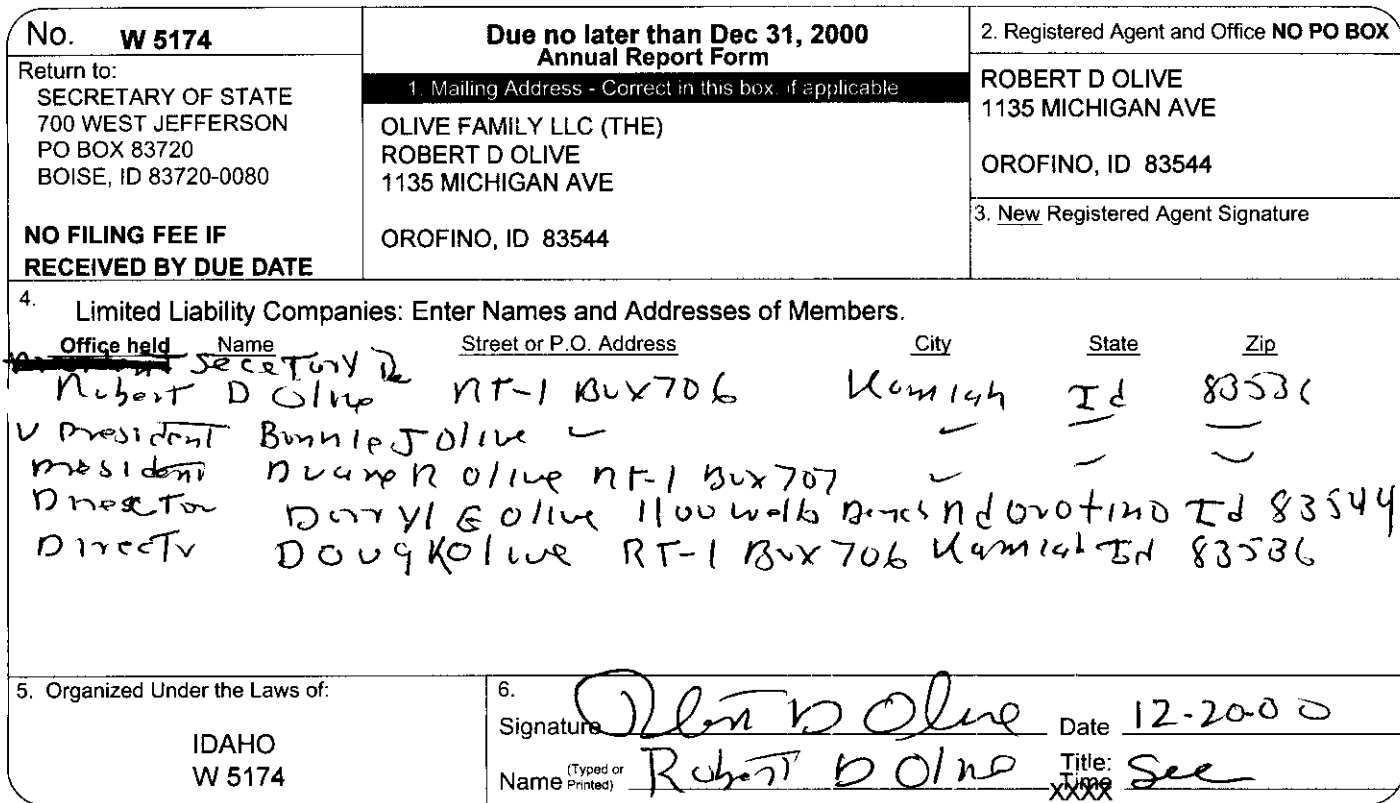 No. W 5174
Return to:
SECRETARY OF STATE
700 WEST JEFFERSON
PO BOX 83720
BOISE, ID 83720-0080
NO FILING FEE IF
RECEIVED BY DUE DATE
Due no later than Dec 31, 2000
Annual Report Form
1. Mailing Address - Correct in this box, if applicable
OLIVE FAMILY LLC (THE)
ROBERT D OLIVE
1135 MICHIGAN AVE
OROFINO, ID 83544
2. Registered Agent and Office NO PO BOX
ROBERT D OLIVE
1135 MICHIGAN AVE
OROFINO, ID 83544
3. New Registered Agent Signature
4. Limited Liability Companies: Enter Names and Addresses of Members.
Office held Name Street or P.O. Address City State Zip
Secetory
Robert D Olive RT-1 Box 706 Kamiah Id 83536
V President Bonnie J Olive
President Duane R Olive RT-1 Box 707
Director Darryl E Olive 1100 Bench Rd Orofino Id 83544
Director Doug K Olive RT-1 Box 706 Kamiah Id 83536
5. Organized Under the Laws of:
IDAHO
W 5174
6.
Signature Robert D Olive Date 12-20-00
Name (Typed or Printed) Robert D Olive Title: Sec